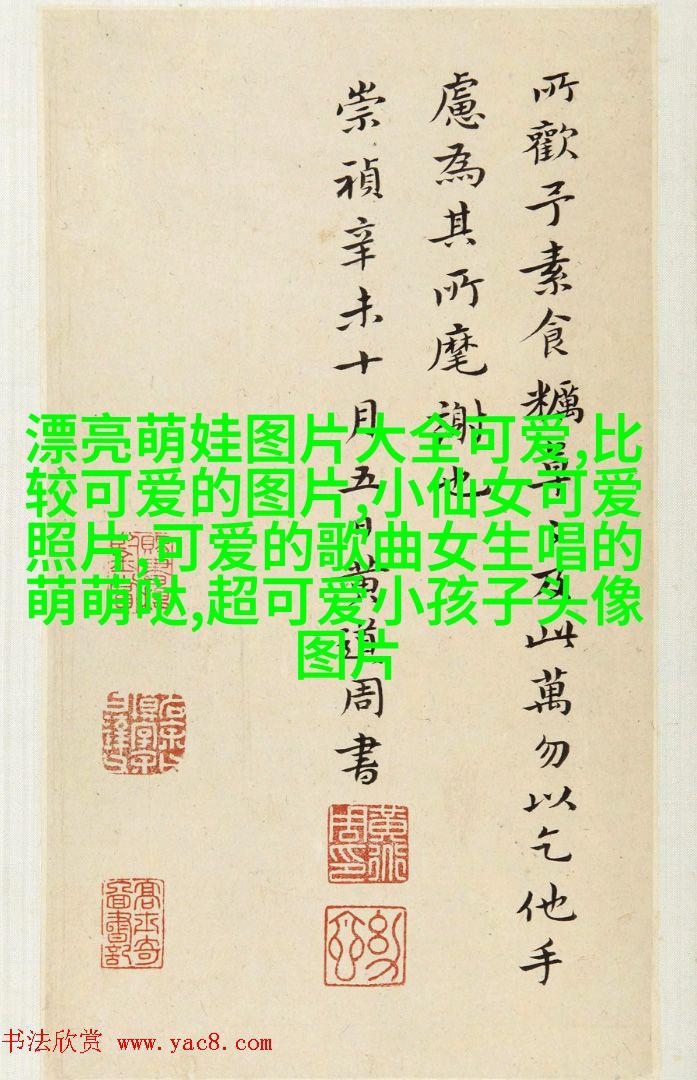 所歡予素食糲及此萬勿以乞他手
慮為其所麾謝也
崇禎辛未十月五日黃道周書
漂亮萌娃图片大全可爱,比
较可爱的图片,小仙女可爱
照片,可爱的歌曲女生唱的
萌萌哒,超可爱小孩子头像
图片
黃道周印
高士奇圖書記
书法欣赏 www.yac8.com